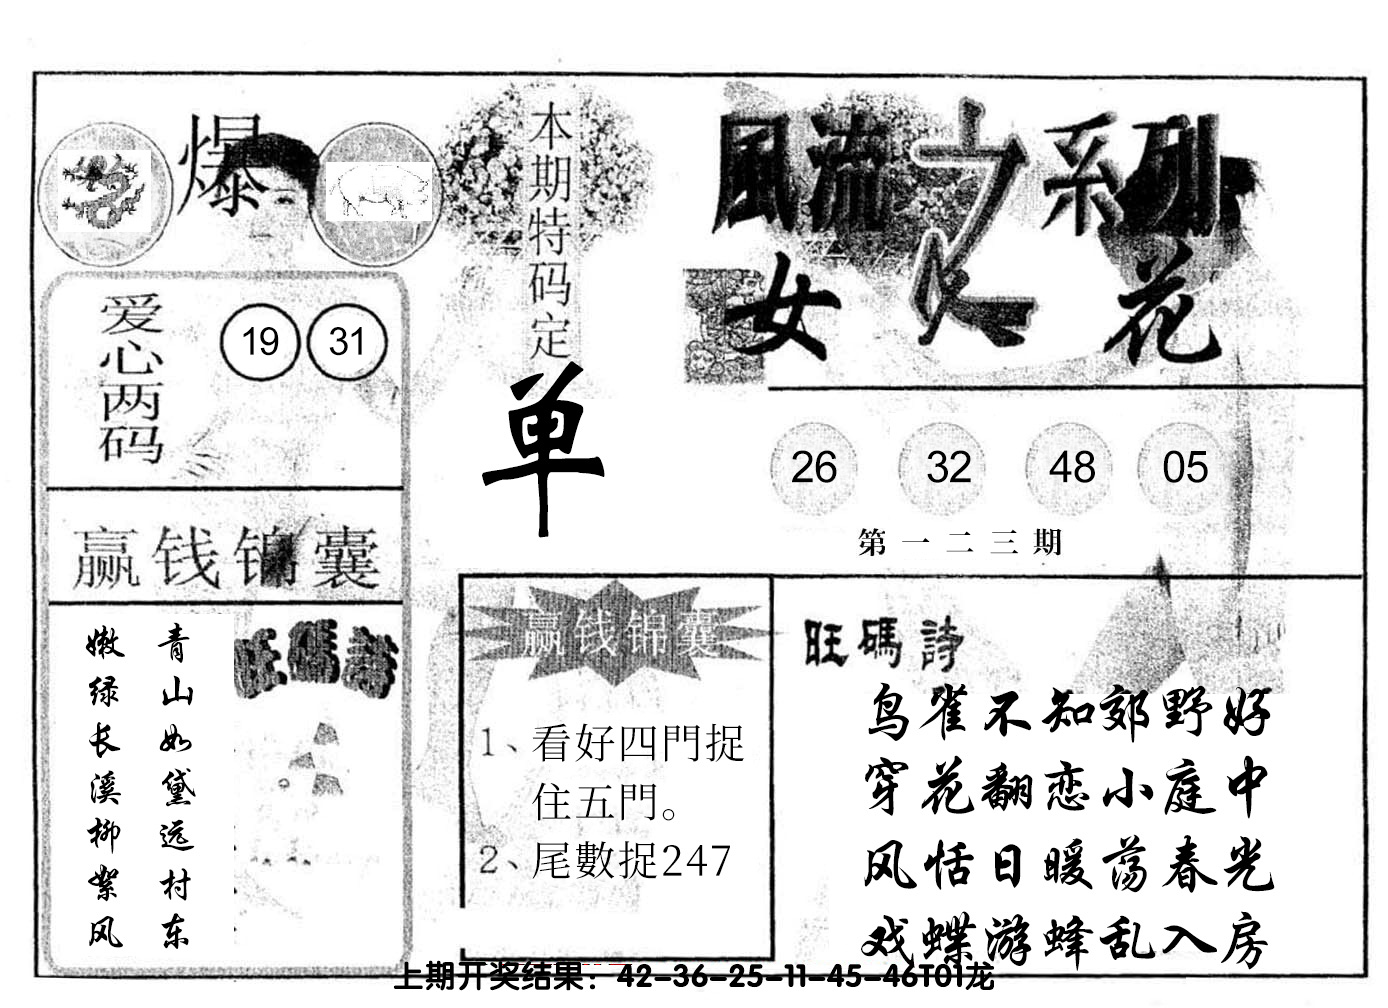 爆
本期特码定
单
風流之系列
女人花
爱心两码
19 31
26 32 48 05
第一二三期
赢钱锦囊
青山如黛远村东
嫩绿长溪柳絮风
旺碼詩
赢钱锦囊
1、看好四門捉
住五門。
2、尾數捉247
旺碼詩
鸟雀不知郊野好
穿花翻恋小庭中
风恬日暖荡春光
戏蝶游蜂乱入房
上期开奖结果：42-36-25-11-45-46T01龙